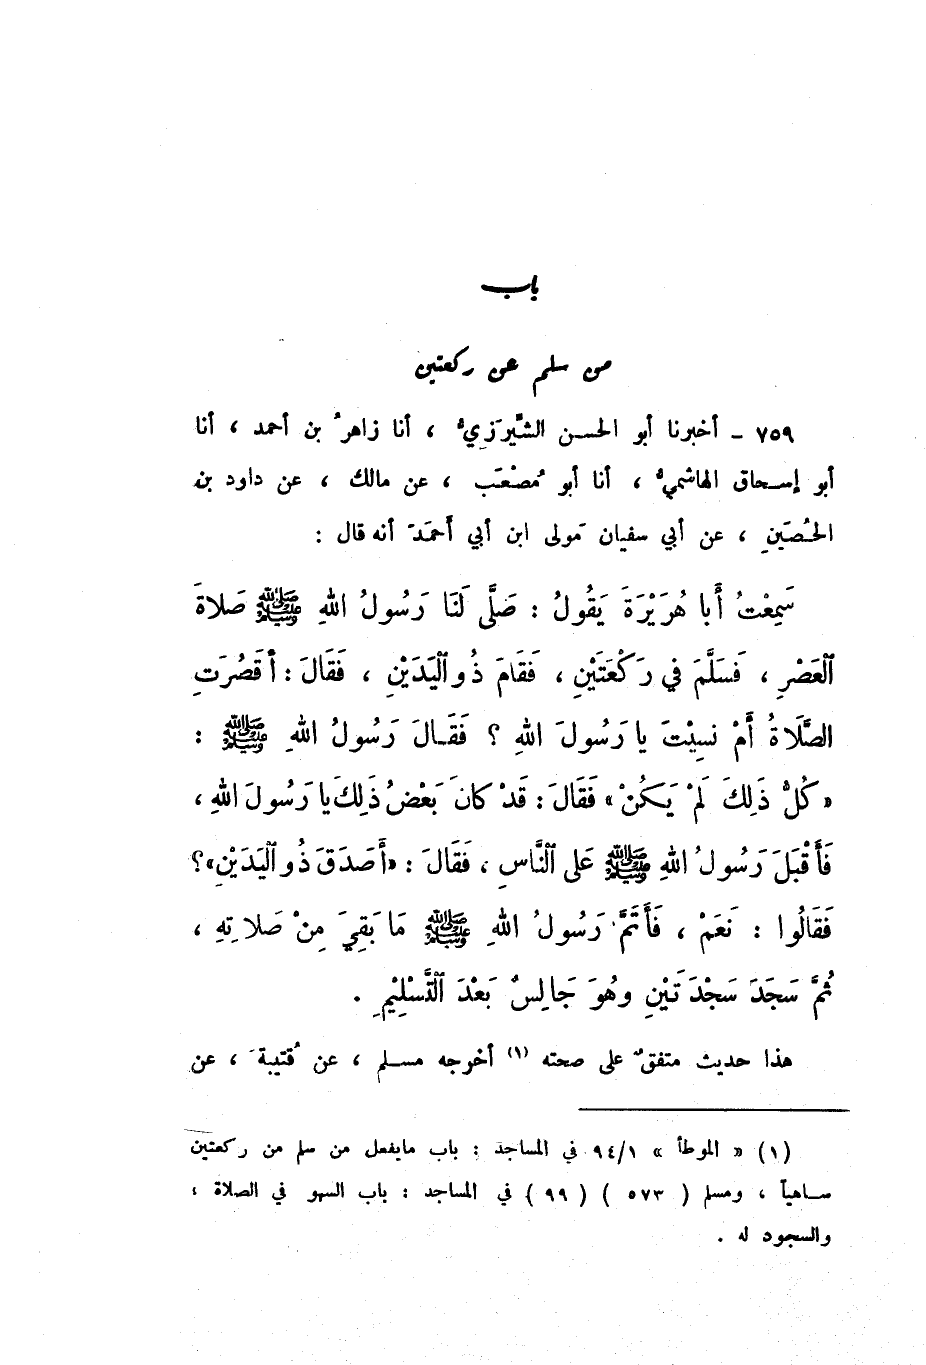 باب
من سلم عن ركعتين
٧٥٩ - أخبرنا أبو الحسن الشِّيرَزيُّ ، أنا زاهرُ بن أحمد ، أنا
أبو إسحاق الهاشميُّ ، أنا أبو مُصْعَب ، عن مالك ، عن داود بن
الحُصَينِ ، عن أبي سفيان مَولى ابن أبي أَحمَدَ أنه قال :
سَمِعْتُ أَبا هُرَيْرَةَ يَقُولُ : صَلَّى لَنَا رَسُولُ اللهِ ﷺ صَلاةَ
ٱلْعَصْرِ ، فَسَلَّمَ فِي رَكْعَتَيْنِ ، فَقَامَ ذُو ٱلْيَدَيْنِ ، فَقَالَ : أَقَصُرَتِ
الصَّلَاةُ أَمْ نَسِيْتَ يا رَسُولَ اللهِ ؟ فَقَالَ رَسُولُ اللهِ ﷺ :
« كُلُّ ذَلِكَ لَمْ يَكُنْ » فَقَالَ : قَدْ كانَ بَعْضُ ذَلِكَ يا رَسُولَ اللهِ ،
فَأَقْبَلَ رَسُولُ اللهِ ﷺ عَلى ٱلنَّاسِ ، فَقَالَ : «أَصَدَقَ ذُو ٱلْيَدَيْنِ»؟
فَقَالُوا : نَعَمْ ، فَأَتَمَّ رَسُولُ اللهِ ﷺ مَا بَقِيَ مِنْ صَلاتِهِ ،
ثُمَّ سَجَدَ سَجْدَتَيْنِ وهُوَ جَالِسٌ بَعْدَ ٱلتَّسْلِيْمِ .
هذا حديث متفقٌ على صحته (١) أخرجه مسلم ، عن قُتيبةَ ، عن
(١) « الموطأ » ٩٤/١ في المساجد : باب مايفعل من سلم من ركعتين
ساهياً ، ومسلم ( ٥٧٣ ) ( ٩٩ ) في المساجد : باب السهو في الصلاة ،
والسجود له .